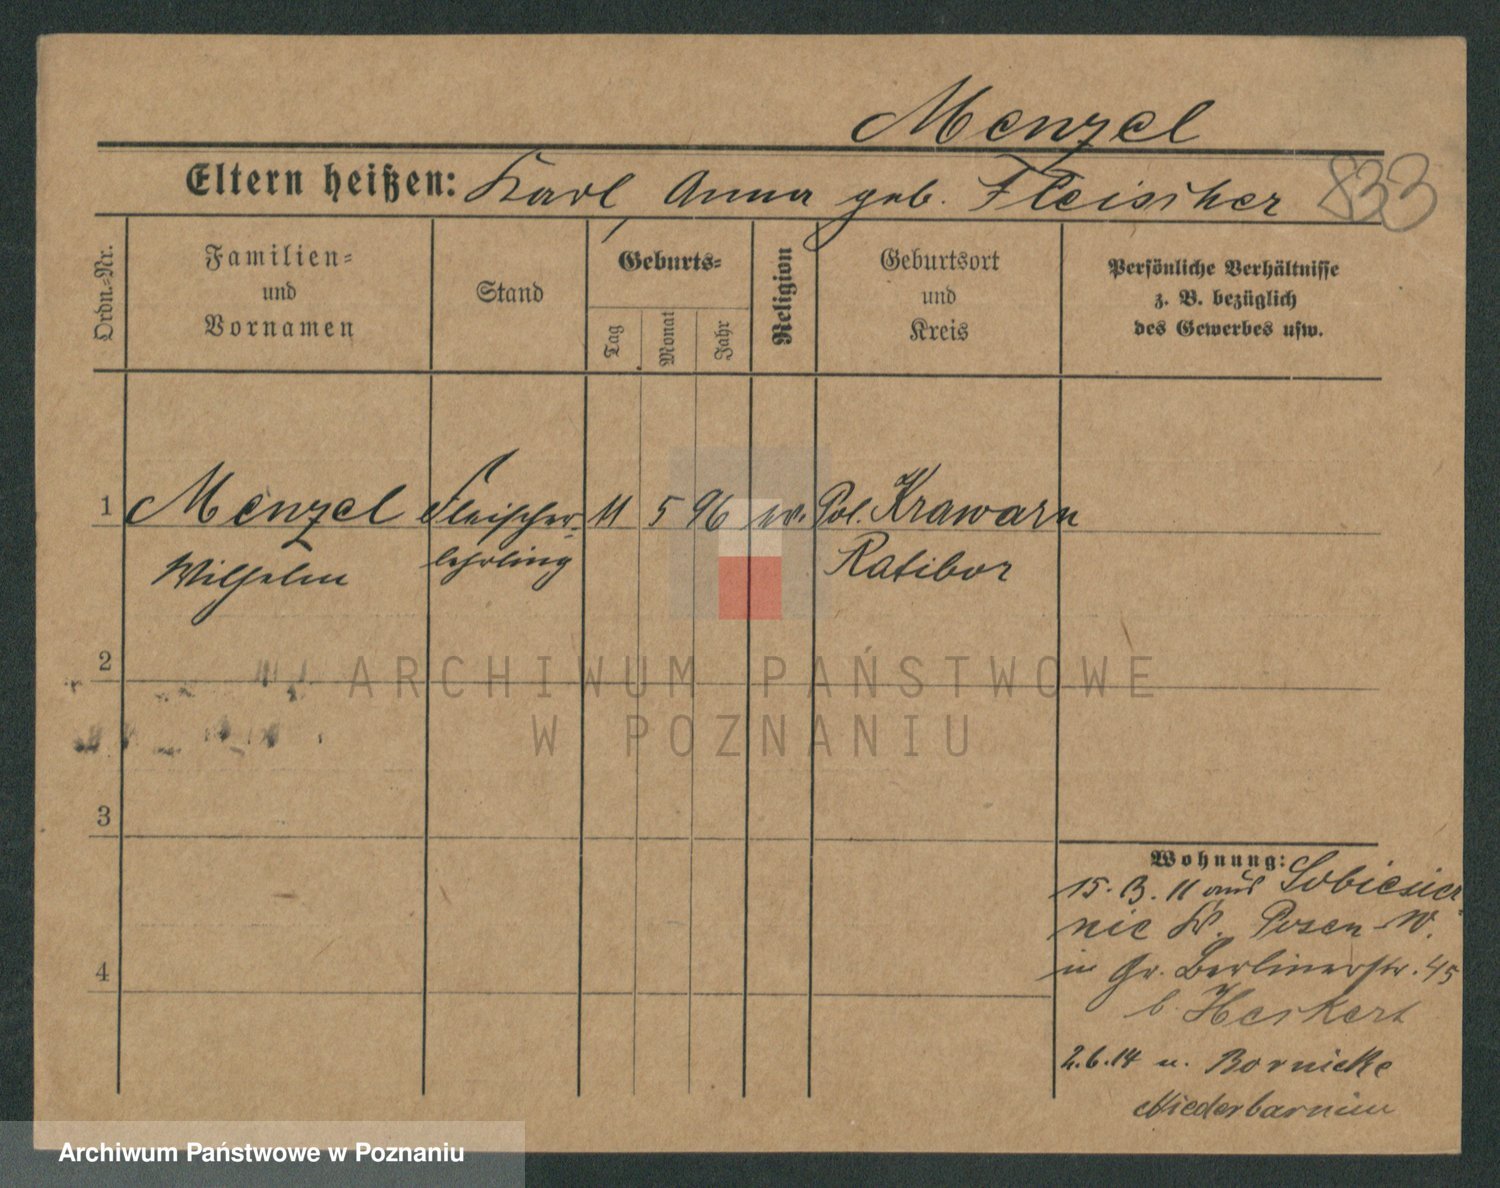 Menzel
Eltern heißen: Karl Anna geb. Fleischer 833
Ordn.-Nr.
Familien-
und
Vornamen
Stand
Geburts-
Tag
Monat
Jahr
Religion
Geburtsort
und
Kreis
Persönliche Verhältnisse
z. B. bezüglich
des Gewerbes usw.
1 Menzel Fleischer- 11 5 96 Pol. Krawarn
Wilhelm lehrling Ratibor
2
3
4
Wohnung:
15. 3. 11 aus Sobiesier-
nie Kr. Posen W.
in Gr. Berlinerstr. 45
b. Heskert
2.6.14 n. Bornicke
Niederbarnim
ARCHIWUM PAŃSTWOWE
W POZNANIU
Archiwum Państwowe w Poznaniu